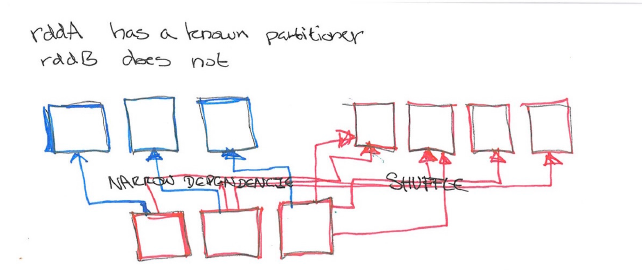 rddA has a known partitioner
rddB does not
NARROW DEPENDENCIE
SHUFFLE